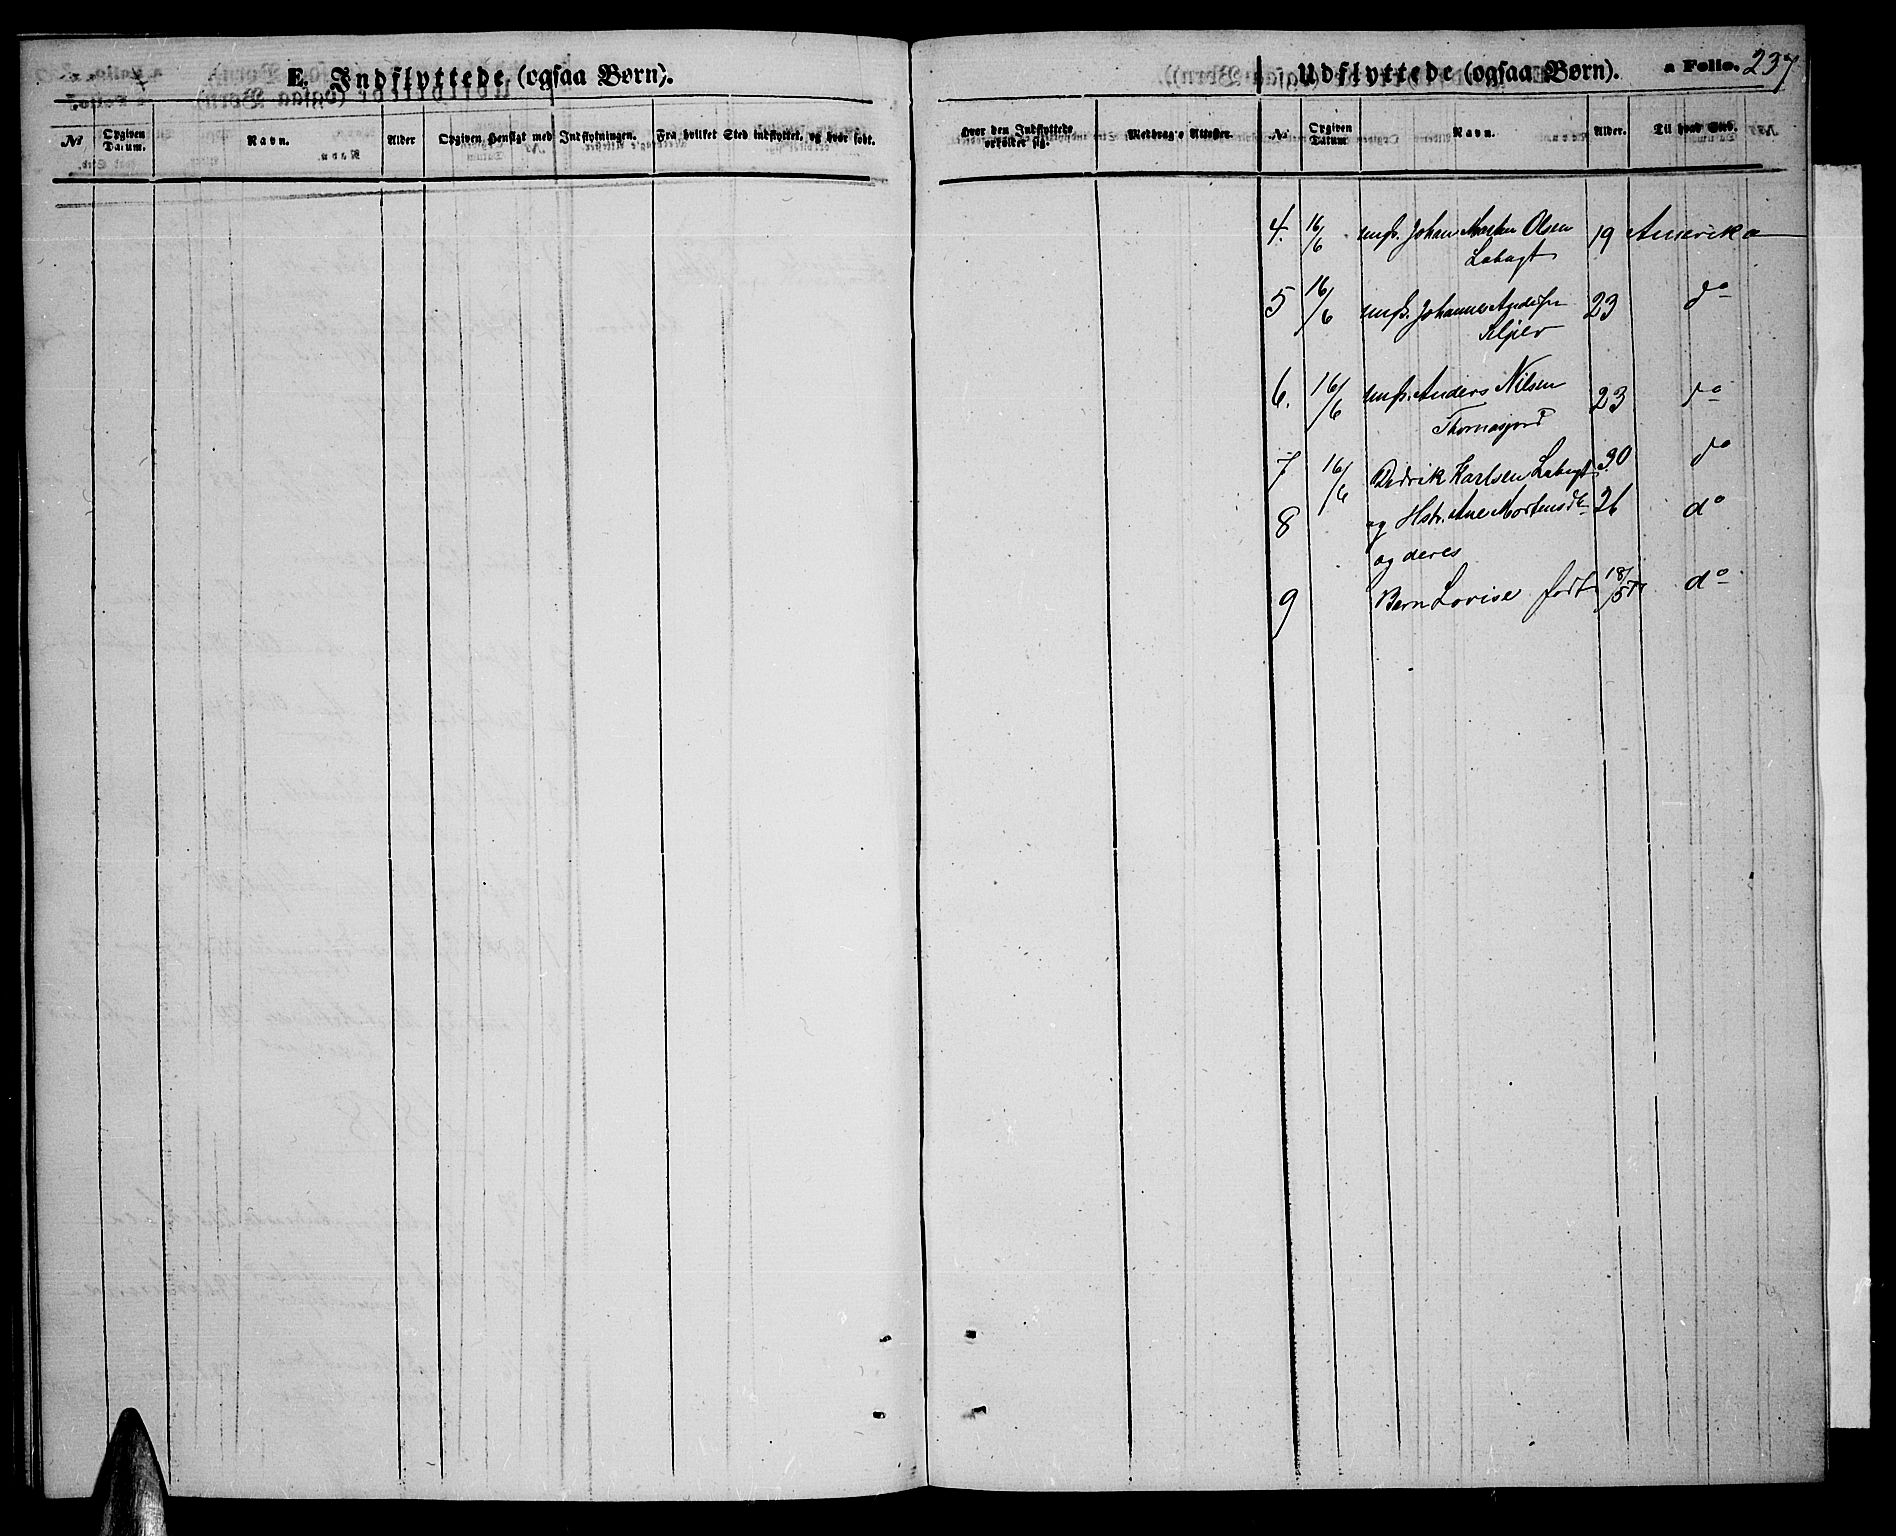 E. Indflyttede (ogsaa Børn).
Udflyttede (ogsaa Børn). a Folio. 237
No Opgiven Datum. Navn. Alder Opgiven Hensigt med Indflytningen. Fra hvilket Sted indflyttet, og hvor født. Hvor den Indflyttede opholder sig. Medbragte Attester. No Opgiven Datum Navn. Alder. Til hvad Sted.
4. 16/6 ungk. Johan Morten Olsen 19 Amerika
Labagt
5 16/6 ungk. Johannes Andersen 23 do
6. 16/6 ungk. Anders Nilsen 23 do
Thomasjord
7 16/6 Didrik Karlsen Labagt 30 do
8 og Hstr. Ane Mortensdtr 26 do
og deres
9 Barn Lovise født 18/5 do